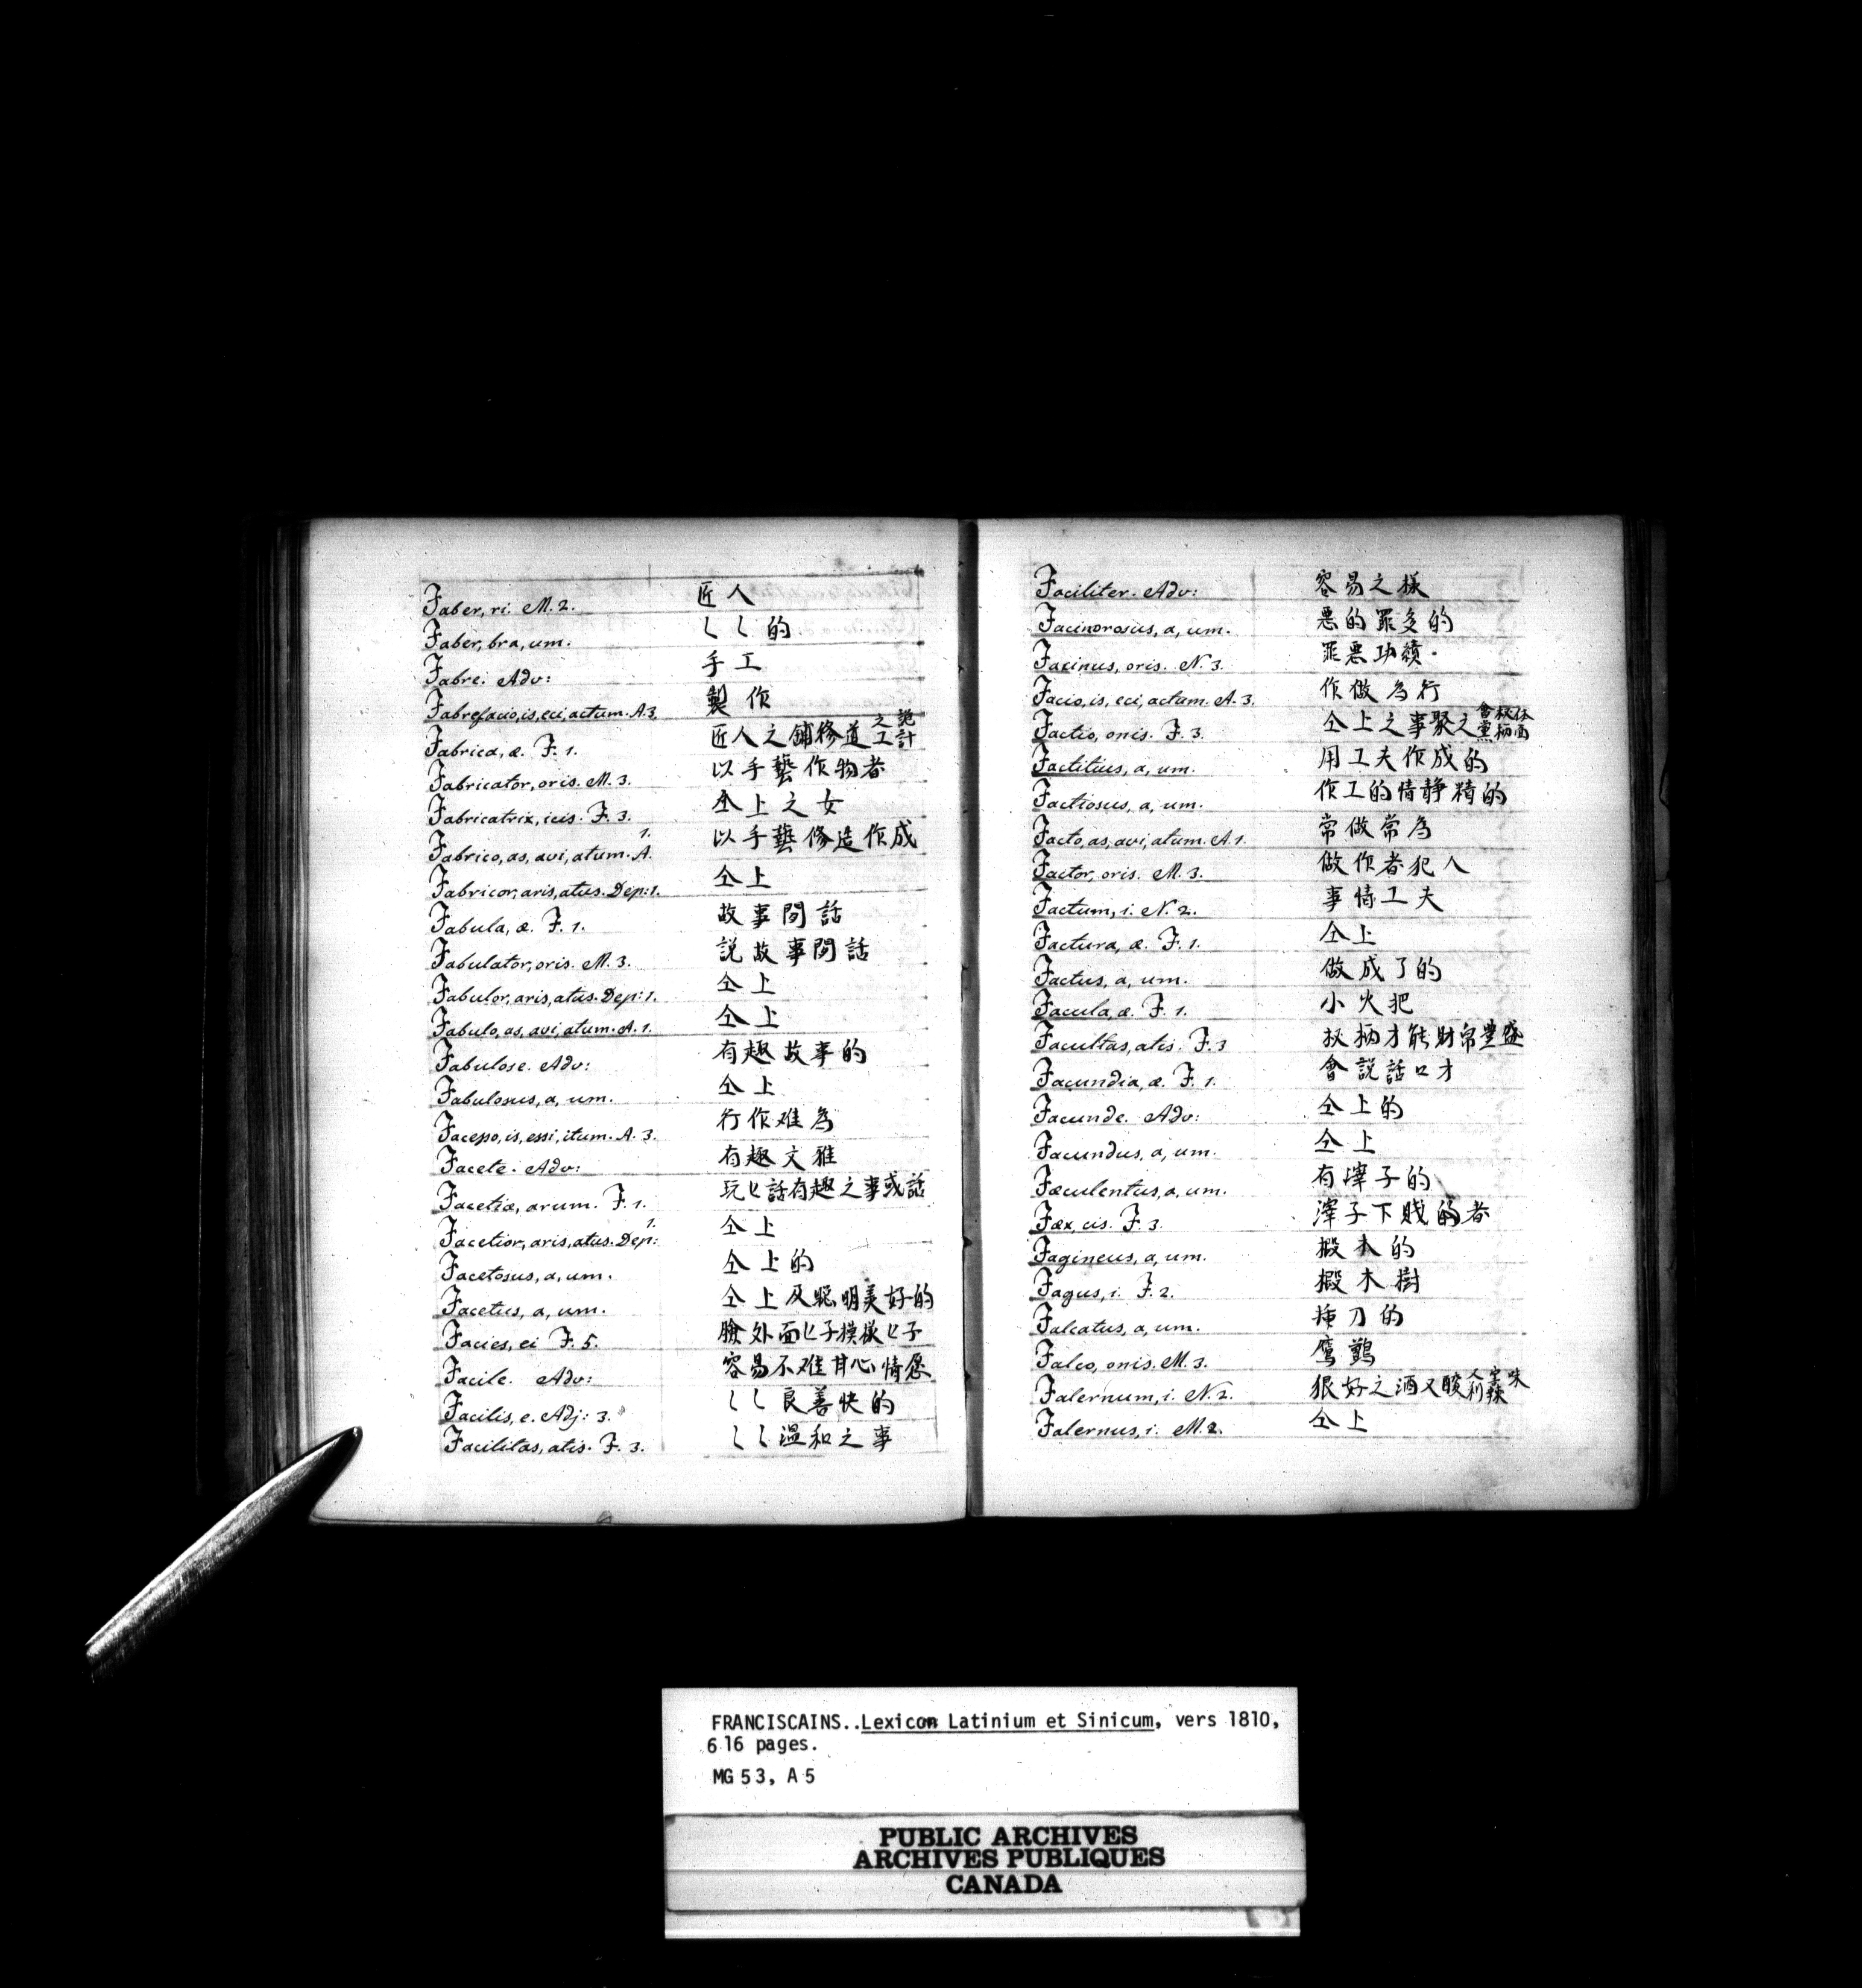 Faber, ri. M. 2. 匠人
Faber, bra, um. 〻〻的
Fabre. Adv: 手工
Fabrefacio, is, eci, actum. A. 3. 製作
Fabrica, æ. F. 1. 匠人之鋪修道之工詭計
Fabricator, oris. M. 3. 以手藝作物者
Fabricatrix, icis. F. 3. 仝上之女
Fabrico, as, avi, atum. A. 1. 以手藝修造作成
Fabricor, aris, atus. Dep: 1. 仝上
Fabula, æ. F. 1. 故事間話
Fabulator, oris. M. 3. 説故事間話
Fabulor, aris, atus. Dep: 1. 仝上
Fabulo, as, avi, atum. A. 1. 仝上
Fabulose. Adv: 有趣故事的
Fabulosus, a, um. 仝上
Facesso, is, essi, itum. A. 3. 行作难為
Facete. Adv: 有趣文雅
Facetiæ, arum. F. 1. 玩〻話有趣之事或話
Facetior, aris, atus. Dep: 1. 仝上
Facetosus, a, um. 仝上的
Facetus, a, um. 仝上及聰明美好的
Facies, ei F. 5. 臉外面〻子模樣〻子
Facile. Adv: 容易不难甘心情愿
Facilis, e. Adj: 3. 〻〻良善快的
Facilitas, atis. F. 3. 〻〻溫和之事
Faciliter. Adv: 容易之樣
Facinorosus, a, um. 惡的罪多的
Facinus, oris. N. 3. 罪惡功績.
Facio, is, eci, actum. A. 3. 作做為行
Factio, onis. F. 3. 仝上之事聚之會黨
Factitius, a, um. 用工夫作成的
Factiosus, a, um. 作工的情靜精的
Facto, as, avi, atum. A. 1. 常做常為
Factor, oris. M. 3. 做作者犯人
Factum, i. N. 2. 事情工夫
Factura, æ. F. 1. 仝上
Factus, a, um. 做成了的
Facula, æ. F. 1. 小火把
Facultas, atis. F. 3 权柄才能財帛豐盛
Facundia, æ. F. 1. 會説話口才
Facunde. Adv: 仝上的
Facundus, a, um. 仝上
Fæculentus, a, um. 有滓子的
Fæx, cis. F. 3. 滓子下賤的者
Fagineus, a, um. 椴木的
Fagus, i. F. 2. 椴木樹
Falcatus, a, um. 刀的
Falco, onis. M. 3. 鷹鷂
Falernum, i. N. 2. 狠好之酒又酸
Falernus, i. M. 2. 仝上
FRANCISCAINS..Lexicon Latinium et Sinicum, vers 1810,
616 pages.
MG 53, A 5
PUBLIC ARCHIVES
ARCHIVES PUBLIQUES
CANADA